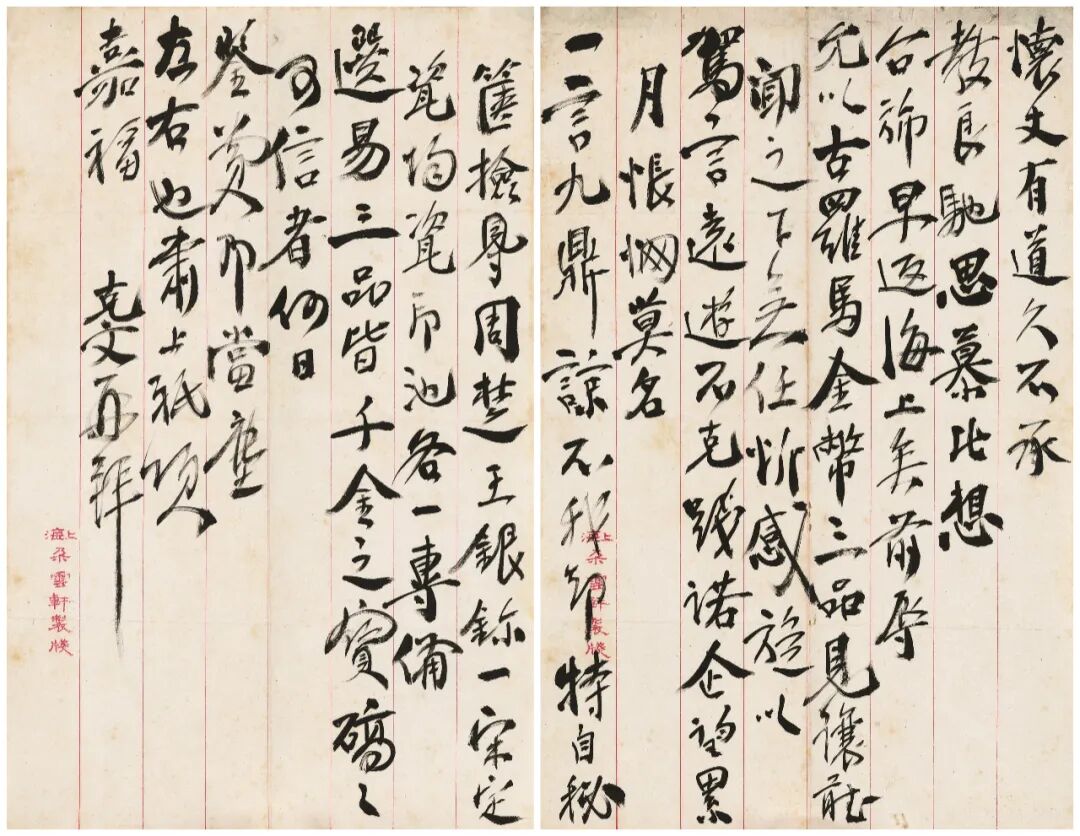 懷丈有道久不承
教良馳思慕比想
台旆早返海上矣前辱
允以古羅馬金幣三品見讓
聞之下無任忻感旋以
駕言遠遊不克踐諾企望累
月悵惘莫名
一言九鼎諒不我卻特自秘
上海朵雲軒製牋
篋撿尋周楚王銀鉨一宋定
瓷均瓷印池各一專備
選易三品皆千金之寶確〻
可信者何日
鑒賁即當塵
左右也肅上祇頌
嘉福
克文再拜
上海朵雲軒製牋